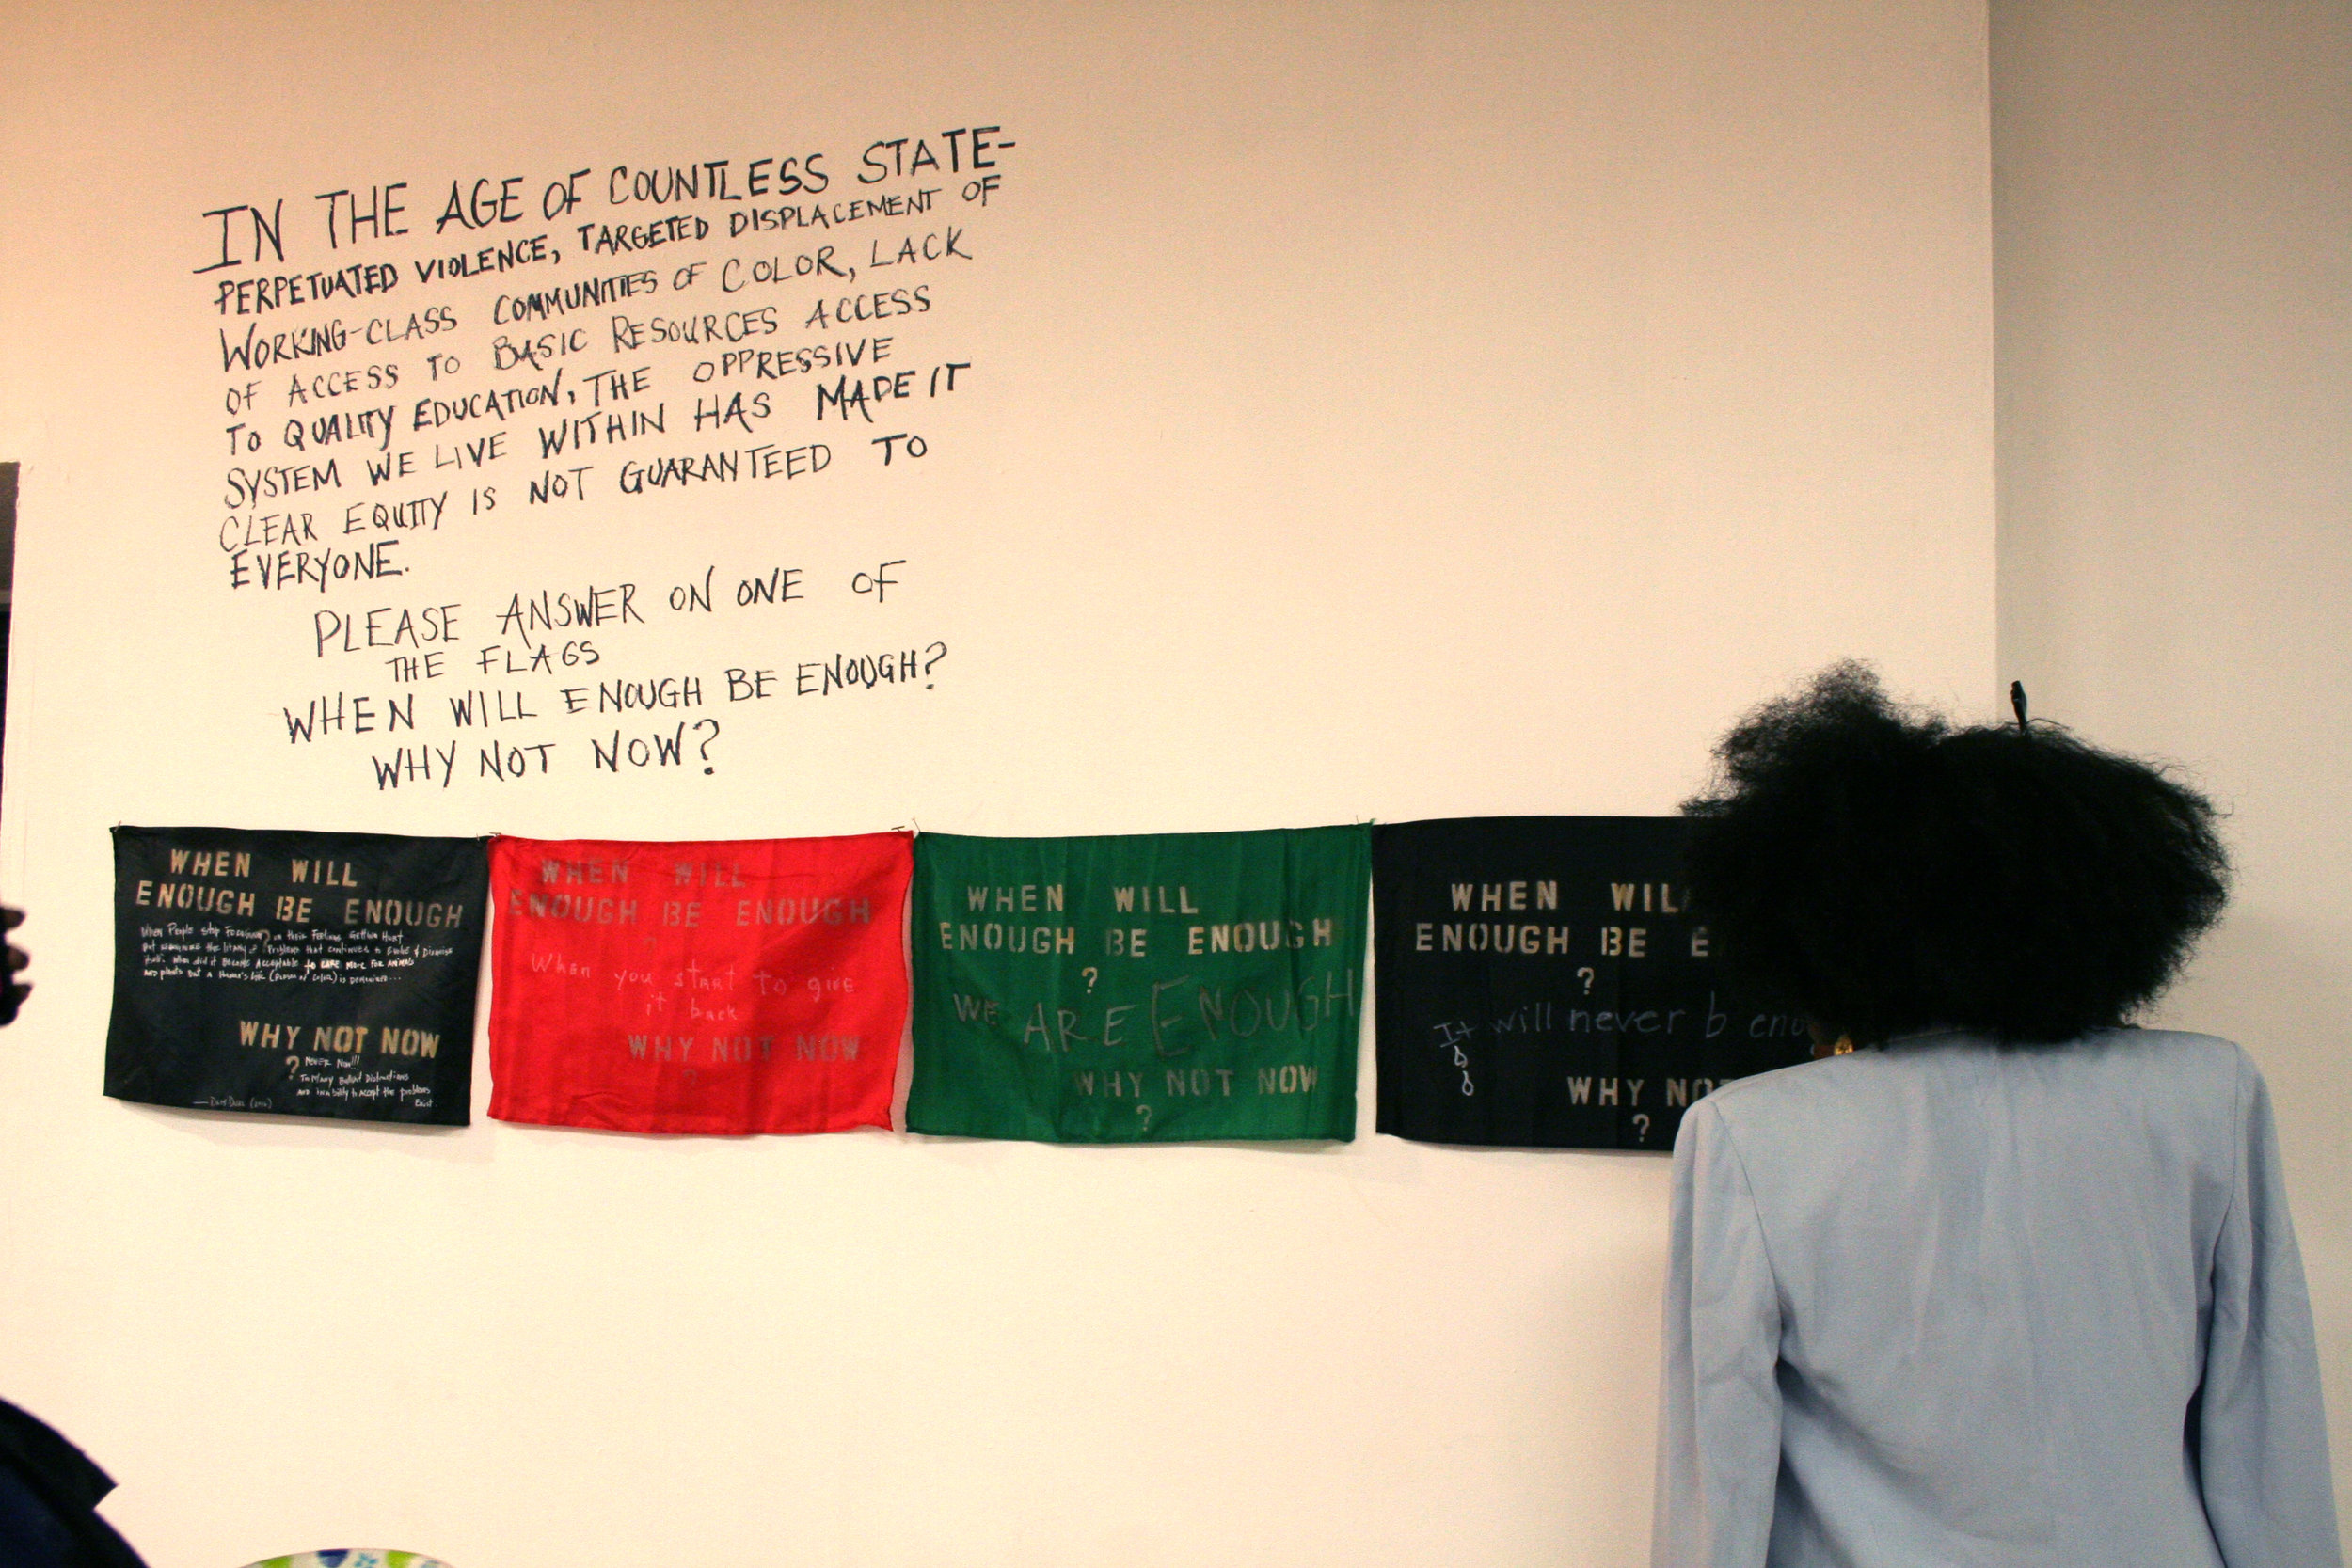 IN THE AGE OF COUNTLESS STATE-
PERPETUATED VIOLENCE, TARGETED DISPLACEMENT OF
WORKING-CLASS COMMUNITIES OF COLOR, LACK
OF ACCESS TO BASIC RESOURCES ACCESS
TO QUALITY EDUCATION, THE OPPRESSIVE
SYSTEM WE LIVE WITHIN HAS MADE IT
CLEAR EQUITY IS NOT GUARANTEED TO
EVERYONE.
PLEASE ANSWER ON ONE OF
THE FLAGS
WHEN WILL ENOUGH BE ENOUGH?
WHY NOT NOW?
WHEN WILL
ENOUGH BE ENOUGH
?
When People Stop Focusing on their Feelings Getting Hurt
but the litany of Problems that continues to Evolve &
itself. When did it Became Acceptable to CARE More For ANIMALS
and plants but a Human's life (Person of Color) is
WHY NOT NOW
?
Never Now!!!
To Many Distractions
and inability to accept the problems
Exist.
WHEN WILL
ENOUGH BE ENOUGH
?
When you start to give
it back
WHY NOT NOW
?
WHEN WILL
ENOUGH BE ENOUGH
?
WE ARE ENOUGH
WHY NOT NOW
?
WHEN WIL
ENOUGH BE E
?
It will never b eno
WHY NOT
?